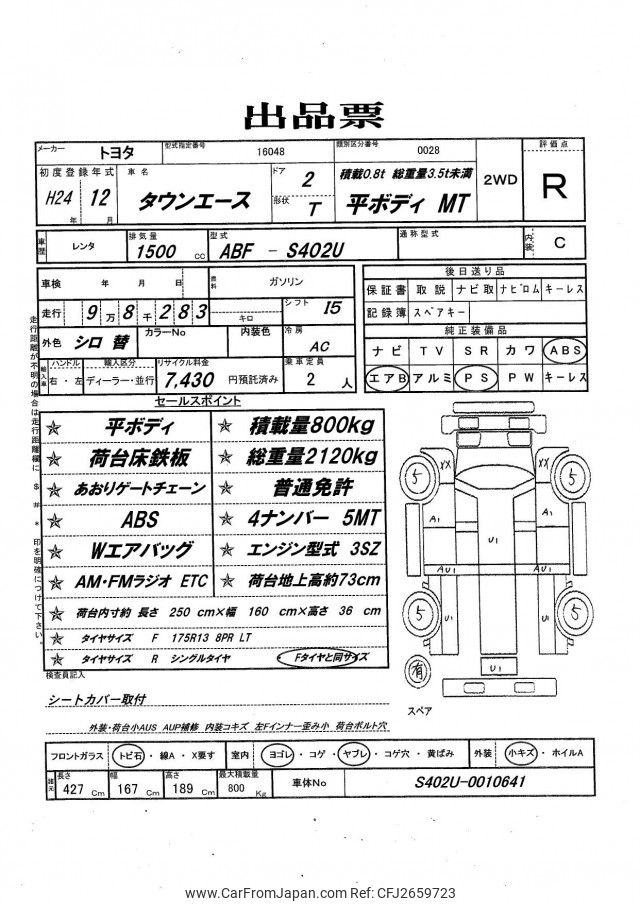 出品票
メーカー トヨタ 型式指定番号 16048 類別区分番号 0028 評価点
初度登録年式 H24年 12月 車名 タウンエース ドア 2 形状 T 積載0.8t 総重量3.5t未満 平ボディ MT 2WD R
車歴 レンタ 排気量 1500 CC 型式 ABF - S402U 通称型式 内装 C
車検 年 月 日 燃料 ガソリン
後日送り品
走行 9万8千283 キロ シフト I5
保証書 取説 ナビ取 ナビロム キーレス
記録簿 スペアキー
外色 シロ 替 カラーNo 内装色 冷房 AC
純正装備品
ナビ TV SR カワ ABS
エアB アルミ PS PW キーレス
輸入車 ハンドル 右・左 輸入区分 ディーラー・並行 リサイクル料金 7,430 円預託済み 乗車定員 2 人
走行距離が不明の場合は走行距離欄に $ # * 印を明確につけて下さい。
セールスポイント
☆ 平ボディ ☆ 積載量800kg
☆ 荷台床鉄板 ☆ 総重量2120kg
☆ あおりゲートチェーン ☆ 普通免許
☆ ABS ☆ 4ナンバー 5MT
☆ Wエアバッグ ☆ エンジン型式 3SZ
☆ AM・FMラジオ ETC ☆ 荷台地上高約73cm
☆ 荷台内寸約 長さ 250 cm×幅 160 cm×高さ 36 cm
☆ タイヤサイズ F 175R13 8PR LT
☆ タイヤサイズ R シングルタイヤ ・ Fタイヤと同サイズ
XX XX
5 5
A1 U1 A1
AU1 AU1
5 5
U1 U1
U1
有
スペア
検査員記入
シートカバー取付
外装・荷台小AUS AUP補修 内装コキズ 左Fインナー歪み小 荷台ボルト穴
フロントガラス トビ石・線A・X要す 室内 ヨゴレ・コゲ・ヤブレ・コゲ穴・黄ばみ 外装 小キズ・ホイルA
諸元 長さ 427 Cm 幅 167 Cm 高さ 189 Cm 最大積載量 800 Kg 車体No S402U-0010641
www.CarFromJapan.com Ref: CFJ2659723